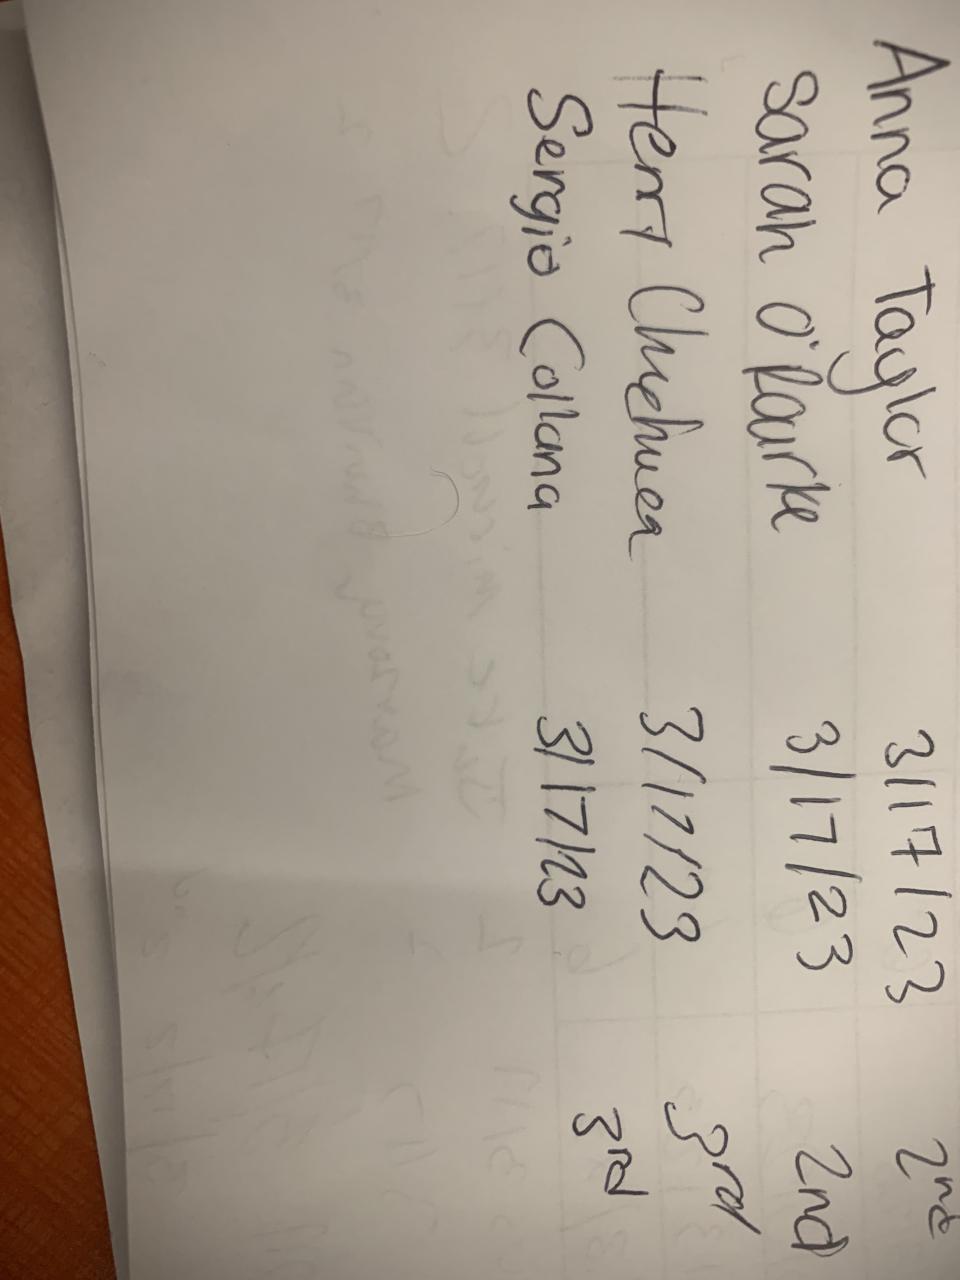 Anna Taylor 3/17/23 2nd
Sarah O'Rourke 3/17/23 2nd
Henry 3/17/23 3rd
Sergio Collana 3/17/23 3rd